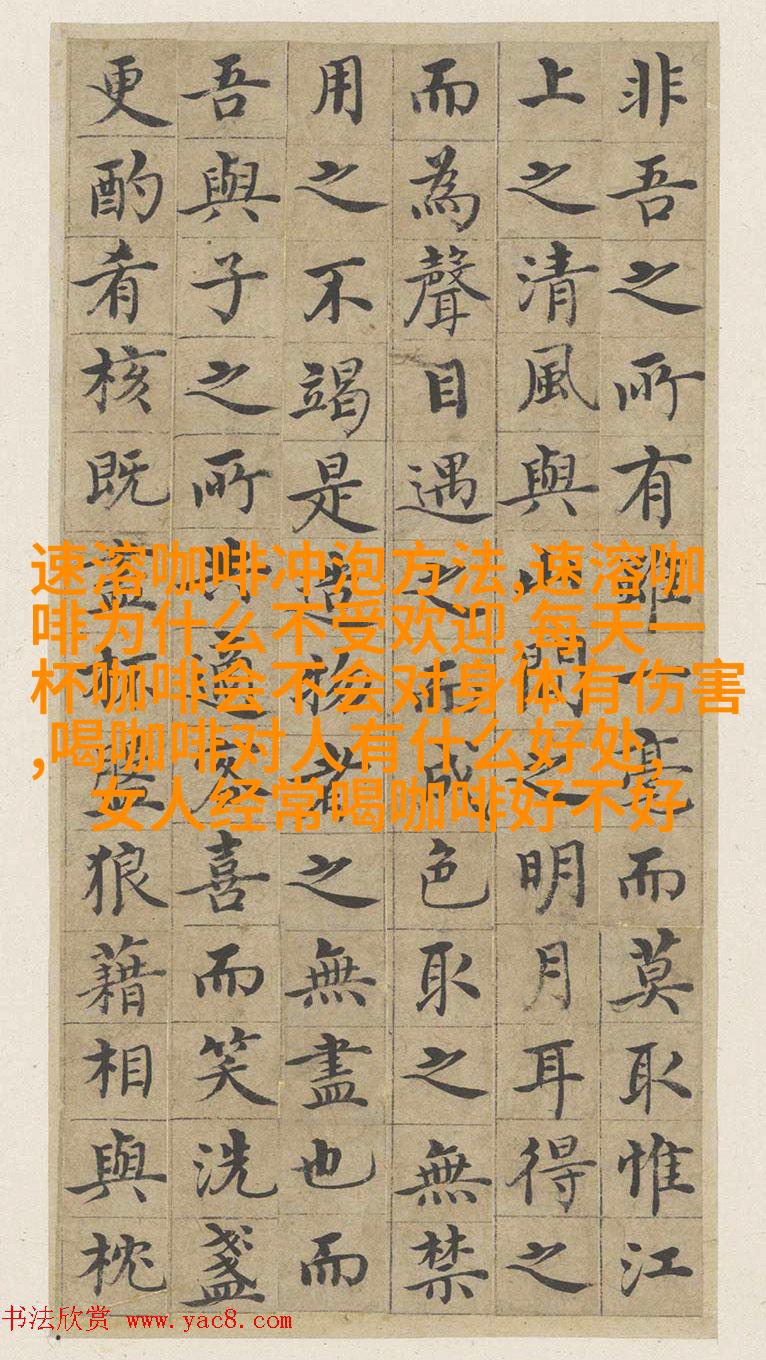 非吾之所有雖一毫而莫取惟江
上之清風與山間之明月耳得之
而為聲目遇之而成色取之無禁
用之不竭是造物者之無盡也而
吾與子之所共適客喜而笑洗盞
更酌肴核既盡杯盤狼藉相與枕
速溶咖啡冲泡方法,速溶咖
啡为什么不受欢迎,每天一
杯咖啡会不会对身体有伤害
,喝咖啡对人有什么好处,
女人经常喝咖啡好不好
书法欣赏 www.yac8.com